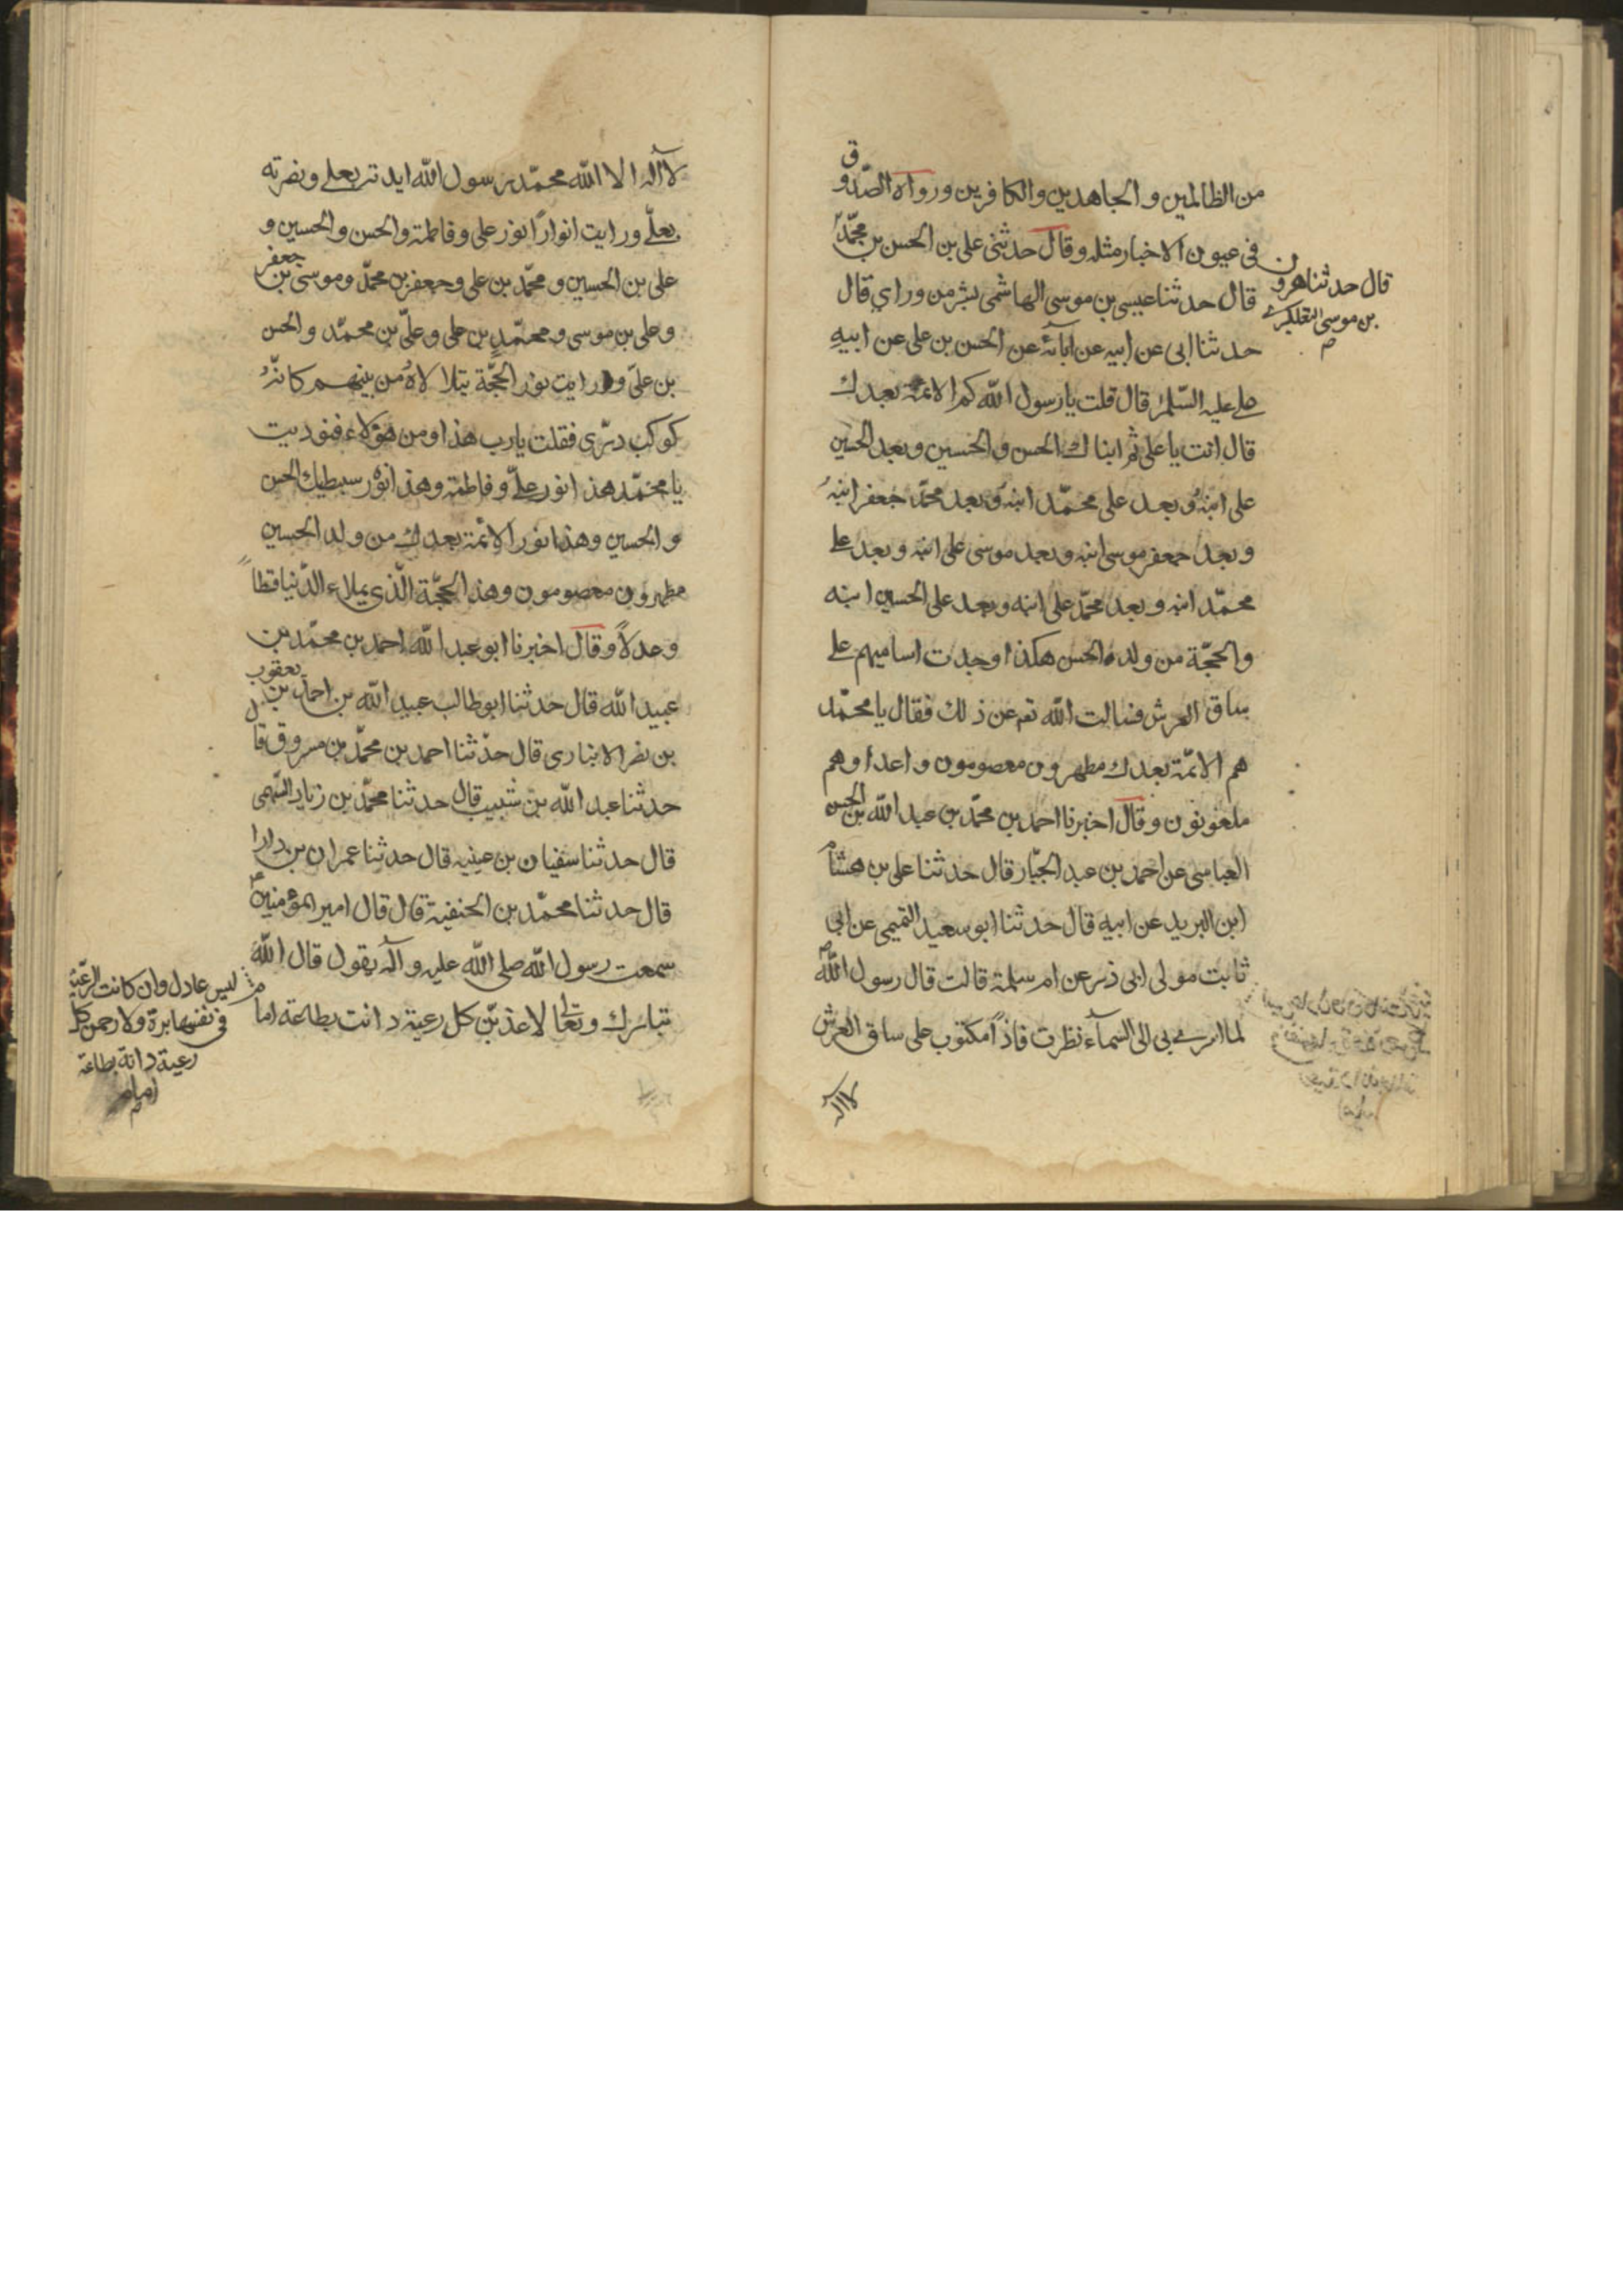 من الظالمين والجاهدين والكافرين ورواه الصّدوق
فى عيون الاخبار مثله وقال حدثنى على بن الحسن بن محمّد
قال حدثنا هرون
بن موسى التلعكبرے
قال حدثنا عيسى بن موسى الهاشمى بسّر من وراى قال
حدثنا ابى عن ابيه عن ابآئه عن الحسن بن على عن ابيه
علے عليه السّلم قال قلت يا رسول الله كم الائمّة بعدك
قال انت يا على ثم ابناك الحسن والحسين وبعد الحسين
على ابنه وبعد على محمّد ابنه وبعد محمّد جعفر ابنه
وبعد جعفر موسى ابنه وبعد موسى على ابنه وبعد علے
محمّد ابنه وبعد محمّد على ابنه وبعد على الحسين ابنه
والحجّة من ولده الحسن هكذا وجدت اساميهم على
ساق العرش فسالت الله تع عن ذلك فقال يا محمّد
هم الائمّة بعدك مطهرون معصومون واعداوهم
ملعونون وقال اخبرنا احمد بن محمّد بن عبد الله بن الحسن
العباسى عن احمد بن عبد الجبّار قال حدثنا على بن هشام
ابن البريد عن ابيه قال حدثنا ابو سعيد التميمى عن ابى
ثابت مولى ابى ذر عن ام سلمة قالت قال رسول الله ص
لما اسرے بى الى السمآء نظرت فاذاً مكتوب على ساق العرش
لا اله
لا آله الا الله محمّد رسول الله ايدته بعلے ونصرته
بعلّے ورايت انواراً نور على وفاطمة والحسن والحسين و
على بن الحسين ومحمّد بن على وجعفر بن محمّد وموسى بن جعفر
وعلى بن موسى ومحمّد بن على وعلىّ بن محمّد والحسن
بن علىّ ورايت نور الحجّة يتلالاه من بينهم كانّه
كوكب درّى فقلت يا رب هذا ومن هؤلاء فنوديت
يا محمّد هذا نور علىّ وفاطمة وهذا نور سبطيك الحسن
والحسين وهذا نور الائمّة بعدك من ولد الحسين
مطهرون معصومون وهذ الحجّة الّذى يملاء الدّنيا قطاً
وعدلاً وقال اخبرنا ابو عبد الله احمد بن محمّد بن
عبيد الله قال حدثنا ابو طالب عبيد الله بن احمد بن يعقوب
بن نصر الانبارى قال حدّثنا احمد بن محمّد بن مسروق قال
حدثنا عبد الله بن شبيب قال حدثنا محمّد بن زياد السّهمى
قال حدثنا سفيان بن عينيه قال حدثنا عمران بن دارا
قال حدثنا محمّد بن الحنفية قال قال امير المؤمنين ع
سمعت رسول الله صلى الله عليه وآله يقول قال الله
تبارك وتعالى لاعذبّن كل رعية دانت بطاعة اما
ليس عادل وان كانت الرعّية
فى نفسها برّة ولارحمن كل
رعية دانة بطاعة
امام